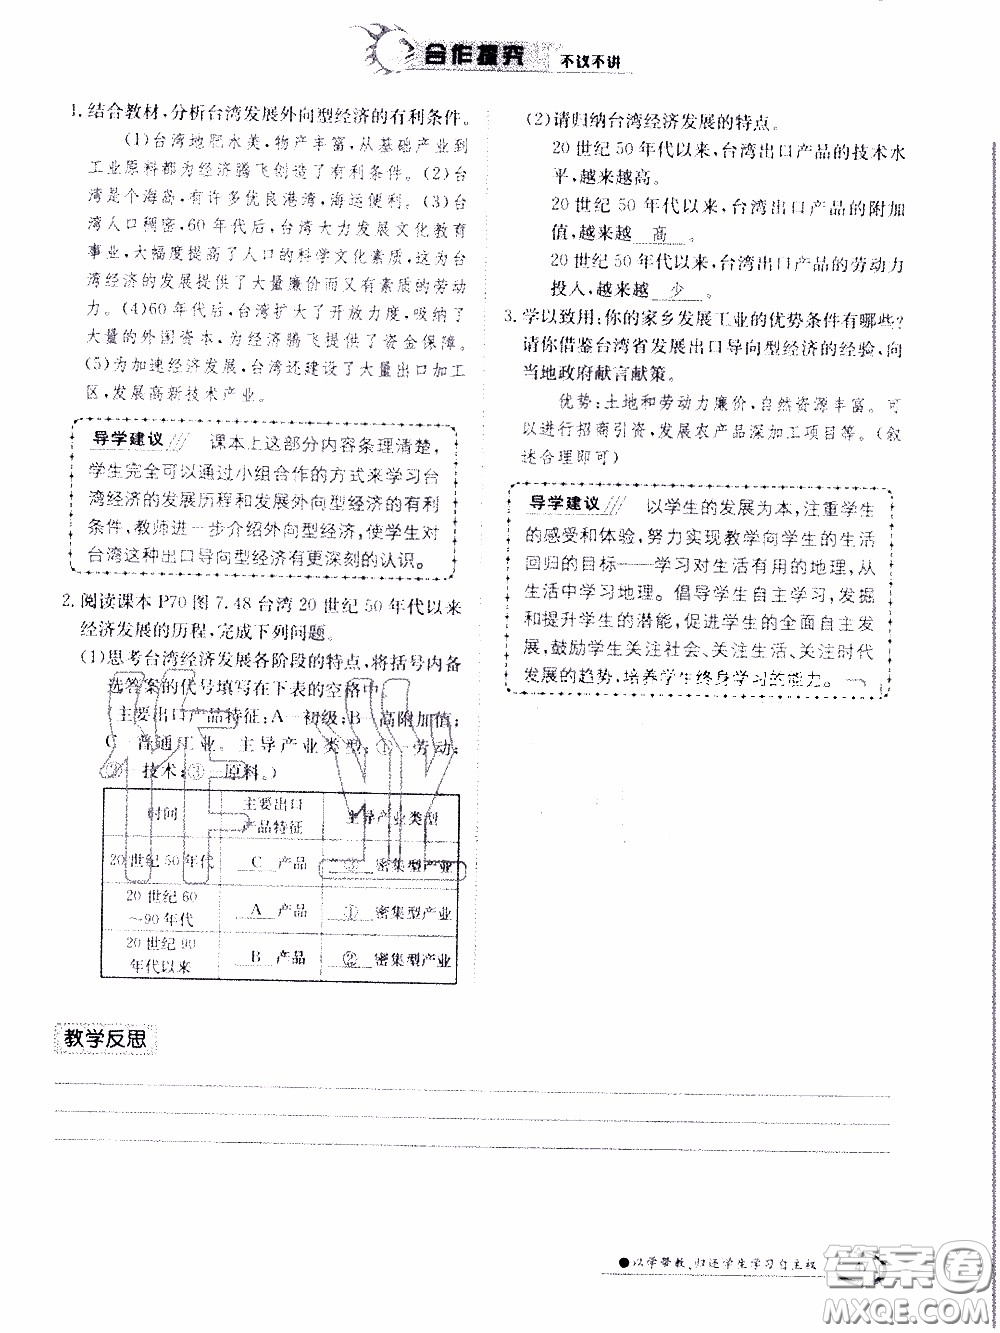 合作探究 不议不讲
1. 结合教材,分析台湾发展外向型经济的有利条件。
(1)台湾地肥水美,物产丰富,从基础产业到
工业原料都为经济腾飞创造了有利条件。(2)台
湾是个海岛,有许多优良港湾,海运便利。(3)台
湾人口稠密,60年代后,台湾大力发展文化教育
事业,大幅度提高了人口的科学文化素质,这为台
湾经济的发展提供了大量廉价而又有素质的劳动
力。(4)60年代后,台湾扩大了开放力度,吸纳了
大量的外国资本,为经济腾飞提供了资金保障。
(5)为加速经济发展,台湾还建设了大量出口加工
区,发展高新技术产业。
导学建议 课本上这部分内容条理清楚,
学生完全可以通过小组合作的方式来学习台
湾经济的发展历程和发展外向型经济的有利
条件,教师进一步介绍外向型经济,使学生对
台湾这种出口导向型经济有更深刻的认识。
2. 阅读课本 P70 图 7.48 台湾 20 世纪 50 年代以来
经济发展的历程,完成下列问题。
(1)思考台湾经济发展各阶段的特点,将括号内备
选答案的代号填写在下表的空格中。
(主要出口产品特征:A—初级;B—高附加值;
C—普通工业。主导产业类型:①—劳动;
②—技术;③—原料。)
时间 主要出口产品特征 主导产业类型
20 世纪 50 年代 C 产品 ③ 密集型产业
20 世纪 60~90 年代 A 产品 ① 密集型产业
20 世纪 90年代以来 B 产品 ② 密集型产业
(2)请归纳台湾经济发展的特点。
20 世纪 50 年代以来,台湾出口产品的技术水
平,越来越高。
20 世纪 50 年代以来,台湾出口产品的附加
值,越来越 高 。
20 世纪 50 年代以来,台湾出口产品的劳动力
投入,越来越 少 。
3. 学以致用:你的家乡发展工业的优势条件有哪些?
请你借鉴台湾省发展出口导向型经济的经验,向
当地政府献言献策。
优势:土地和劳动力廉价,自然资源丰富。可
以进行招商引资,发展农产品深加工项目等。(叙
述合理即可)
导学建议 以学生的发展为本,注重学生
的感受和体验,努力实现教学向学生的生活
回归的目标——学习对生活有用的地理,从
生活中学习地理。倡导学生自主学习,发掘
和提升学生的潜能,促进学生的全面自主发
展,鼓励学生关注社会、关注生活、关注时代
发展的趋势,培养学生终身学习的能力。
教学反思
●以学带教、归还学生学习自主权
答案圈
MXQE.COM